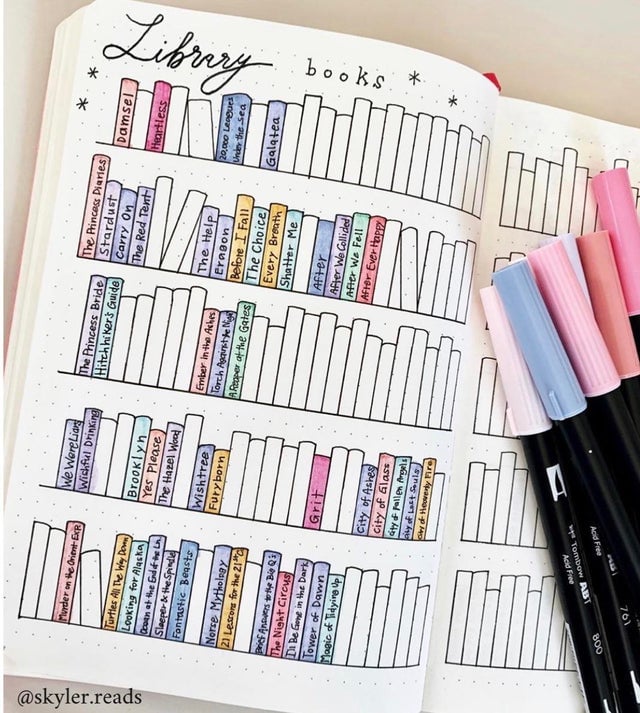 Library books
Damsel
Heartless
20,000 Leagues
Under the Sea
Galatea
The Princess Diaries
Stardust
Carry On
The Red Tent
The Help
Eragon
Before I Fall
The Choice
Every Breath
Shatter Me
After
After We Collided
After We Fell
After Ever Happy
The Princess Bride
Hitchhiker's Guide
Ember in the Ashes
Torch Against the Night
A Reaper at the Gates
We Were Liars
Wishful Drinking
Brooklyn
Yes Please
The Hazel Wood
Wishtree
Furyborn
Grit
City of Ashes
City of Glass
City of Fallen Angels
City of Lost Souls
City of Heavenly Fire
Murder on the Orient Exp.
Turtles All the Way Down
Looking for Alaska
Ocean at the End of the Ln.
Sleeper & the Spindle
Fantastic Beasts
Norse Mythology
21 Lessons for the 21st C
Brief Answers to the Big Q's
The Night Circus
I'll Be Gone in the Dark
Tower of Dawn
Magic of Tidying Up
Acid Free
Tombow ABT
800
Acid Free
761
@skyler.reads